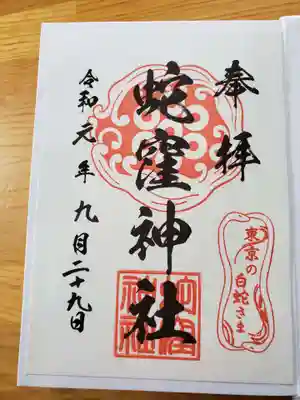 奉拝
蛇窪神社
令和元年九月二十九日
東京の
白蛇さま